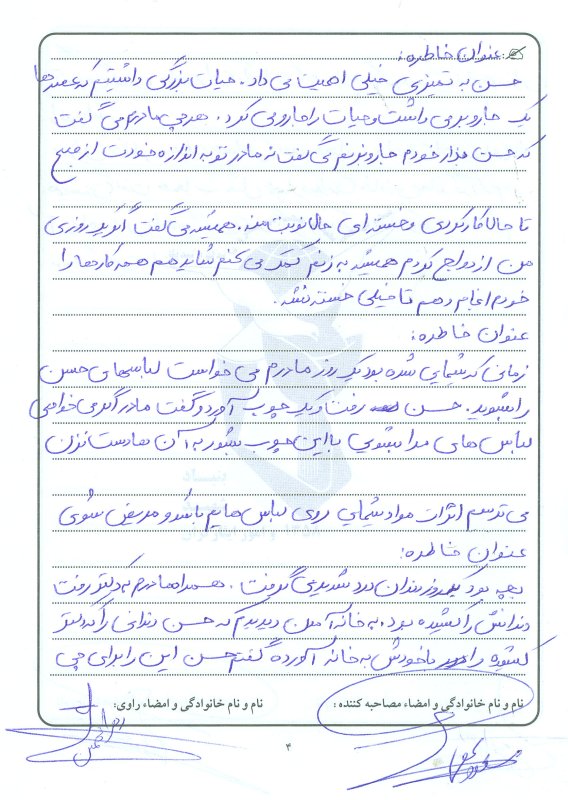 عنوان خاطره:
حسن به تمیزی خیلی اهمیت می داد. حیات بزرگی داشتیم که عصرها
یک جارو برمی داشت و حیات را جارو می کرد. هرچی مادرم می گفت
که حسن بذار خودم جارو بزنم می گفت نه مادر تو به اندازه خودت از صبح
تا حالا کار کردی و خسته ای حالا نوبت منه. همیشه می گفت اگر یک روزی
من ازدواج کردم همیشه به زنم کمک می کنم شاید هم همه کارها را
خودم انجام دهم تا خیلی خسته نشه.
عنوان خاطره:
زمانی که شیمیایی شده بود یک روز مادرم می خواست لباسهای حسن
را بشوید. حسن رفت و یک چوب آورد و گفت مادر اگر می خواهی
لباس های مرا بشوئی با این چوب بشور به آن ها دست نزن
می ترسم اثرات مواد شیمیایی روی لباس هایم باشد و مریض شوی
عنوان خاطره:
بچه بود یک روز دندان درد شدیدی گرفت. همراه مادرم به دکتر رفت
دندانش را کشیده بود، به خانه آمدن دیدیم که حسن دندانی را که دکتر
کشیده را با خودش به خانه آورده گفتم حسن این را برای چی
نام و نام خانوادگی و امضاء مصاحبه کننده: نام و نام خانوادگی و امضاء راوی:
۴